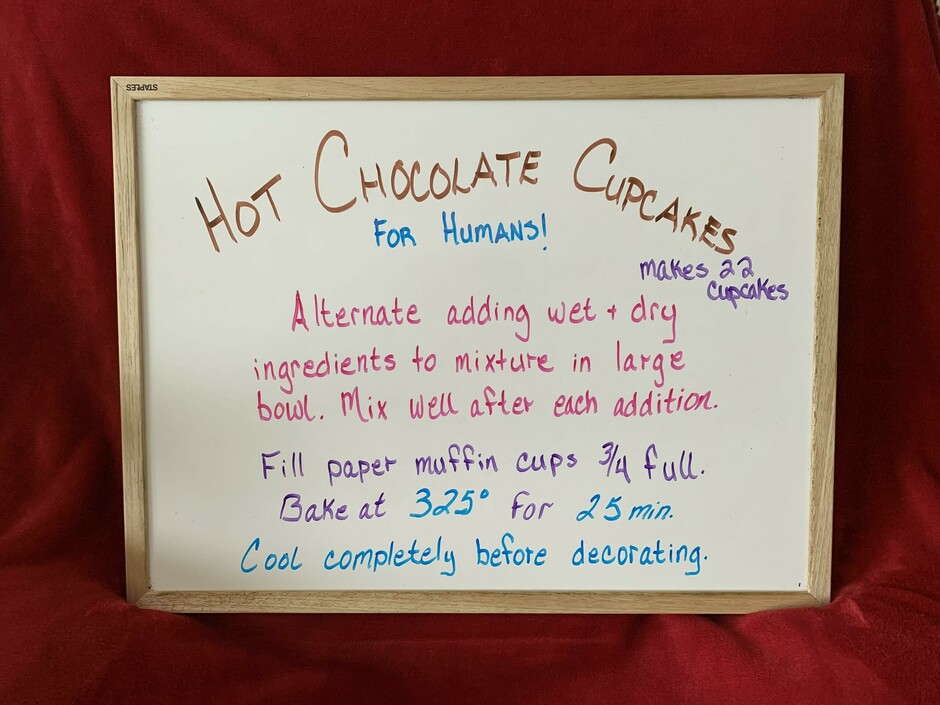 STAPLES
HOT CHOCOLATE CUPCAKES
FOR HUMANS!
makes 22
cupcakes
Alternate adding wet + dry
ingredients to mixture in large
bowl. Mix well after each addition.
Fill paper muffin cups 3/4 full.
Bake at 325° for 25 min.
Cool completely before decorating.